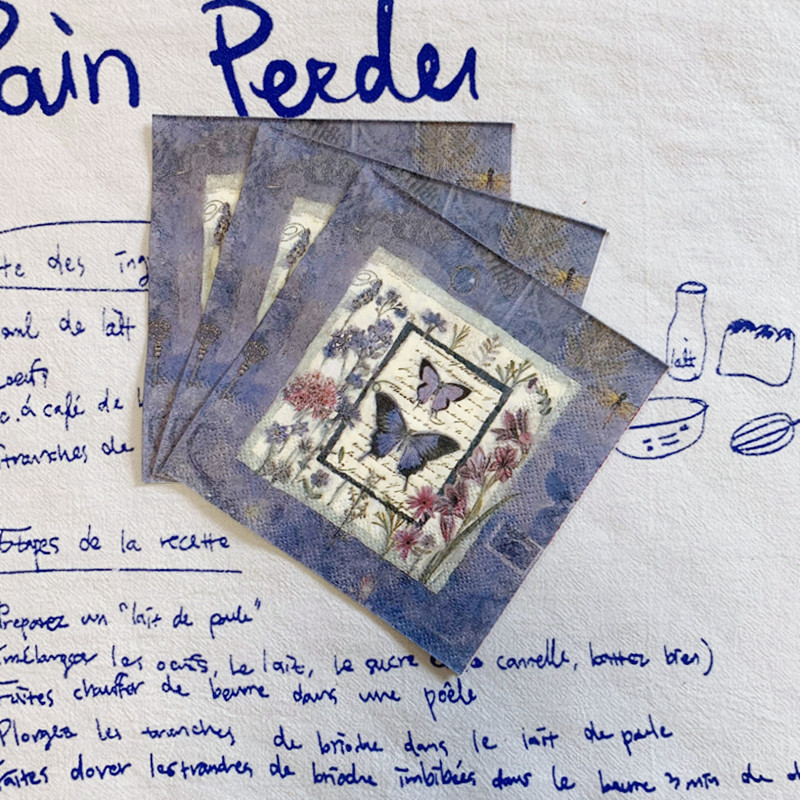 Pain Perdu
te des ing
ml de lait
oeufs
c. à café de
tranches de
lait
Etapes de la recette
Preparez un "lait de poule"
(mélangez les oeufs, le lait, le sucre cannelle, battez bien)
Faites chauffer de beurre dans une poêle
Plongez les tranches de brioche dans le lait de poule
Faites dorer les tranches de brioche imbibées dans le beurre 3 min de